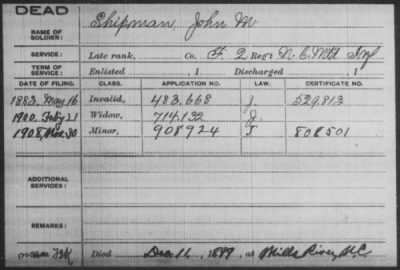 DEAD
NAME OF SOLDIER: Shipman, John M.
SERVICE: Late rank, Co. F, 2 Reg't N.C. Mtd Inf
TERM OF SERVICE: Enlisted , 1 Discharged , 1
DATE OF FILING. CLASS. APPLICATION NO. LAW. CERTIFICATE NO.
1883, May 16 Invalid, 483.668 J. 529.813
1900. Feby 21 Widow, 714.132 J.
1908, Nov. 30 Minor, 908924 J 808501
ADDITIONAL SERVICES:
REMARKS:
Died Dec. 16, 1899, at Mills River, N.C.